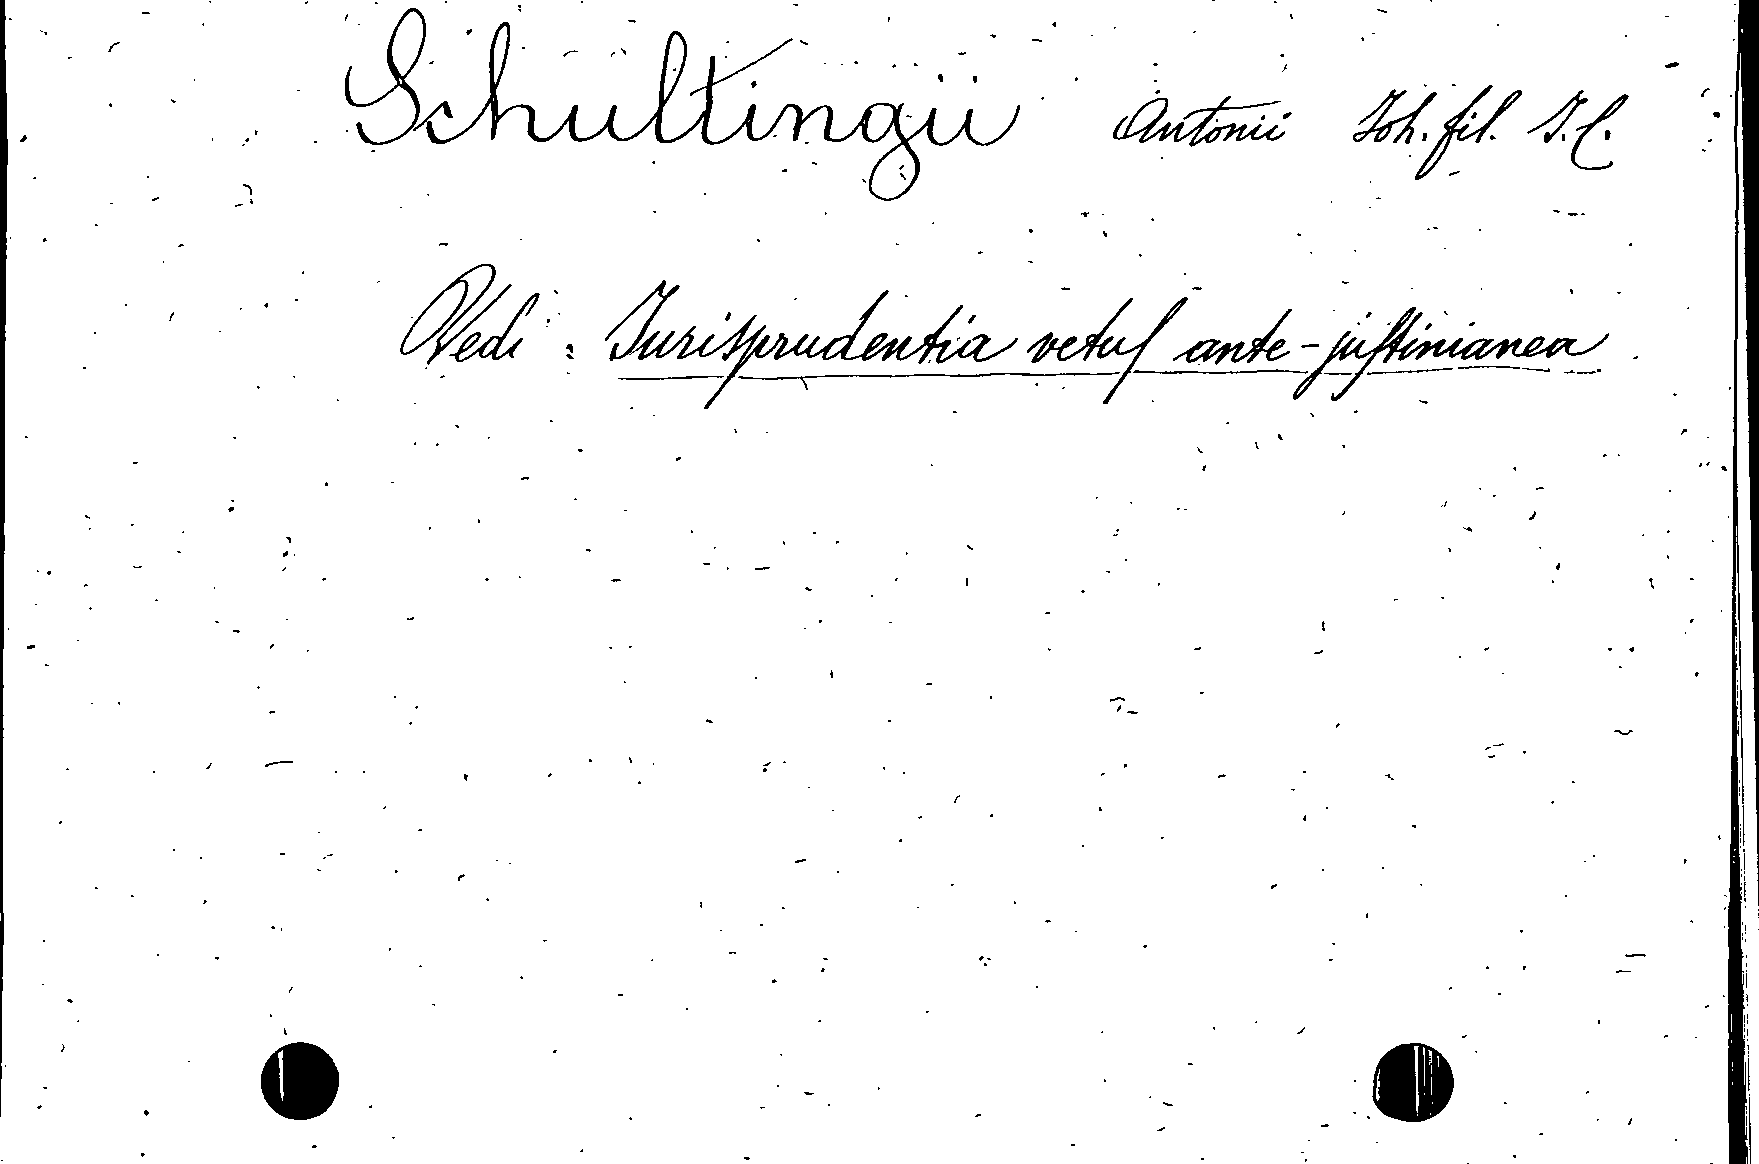 Schultingii Antonii Joh. fil. J. C.
Vedi: Jurisprudentia vetuſ ante-juſtinianea